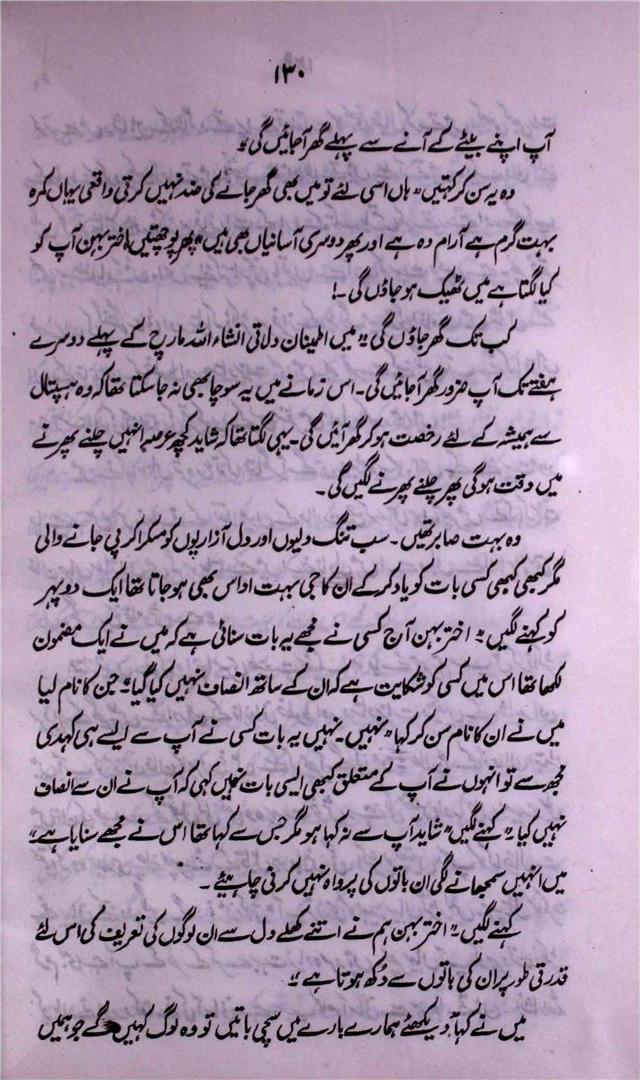 ۱۳۰
آپ اپنے بیٹے کے آنے سے پہلے گھر آجائیں گی"
وہ یہ سن کر کہتیں" ہاں اسی لئے تو میں بھی گھر جانے کی ضد نہیں کرتی واقعی یہاں کمرہ
بہت گرم ہے آرام دہ ہے اور پھر دوسری آسانیاں بھی ہیں" پھر پوچھتیں اختر بہن آپ کو
کیا لگتا ہے میں ٹھیک ہو جاؤں گی ۔!
کب تک گھر جاؤں گی" میں اطمینان دلاتی انشاء اللہ مارچ کے پہلے دوسرے
ہفتے تک آپ ضرور گھر آجائیں گی۔ اس زمانے میں یہ سوچا بھی نہ جاسکتا تھا کہ وہ ہسپتال
سے ہمیشہ کے لئے رخصت ہو کر گھر آئیں گی۔ یہی لگتا تھا کہ شاید کچھ عرصہ انہیں چلنے پھرنے
میں دقت ہوگی پھر چلنے پھرنے لگیں گی۔
وہ بہت صابر تھیں۔ سب تنگ دلیوں اور دل آزاریوں کو مسکرا کر پی جانے والی
مگر کبھی کبھی کسی بات کو یاد کر کے ان کا جی بہت اداس بھی ہو جاتا تھا ایک دوپہر
کو کہنے لگیں" اختر بہن آج کسی نے مجھے یہ بات سنائی ہے کہ میں نے ایک مضمون
لکھا تھا اس میں کسی کو شکایت ہے کہ ان کے ساتھ انصاف نہیں کیا گیا" جن کا نام لیا
میں نے ان کا نام سن کر کہا" نہیں۔ نہیں یہ بات کسی نے آپ سے ایسے ہی کہدی
مجھ سے تو انہوں نے آپ کے متعلق کبھی ایسی بات نہیں کہی کہ آپ نے ان سے انصاف
نہیں کیا۔" کہنے لگیں" شاید آپ سے نہ کہا ہو مگر جس سے کہا تھا اس نے مجھے سنایا ہے"
میں انہیں سمجھانے لگی ان باتوں کی پرواہ نہیں کرنی چاہیئے۔
کہنے لگیں۔" اختر بہن ہم نے اتنے کھلے دل سے ان لوگوں کی تعریف کی اس لئے
قدرتی طور پر ان کی باتوں سے دکھ ہوتا ہے"
میں نے کہا" دیکھئے ہمارے بارے میں سچی باتیں تو وہ لوگ کہیں گے جو ہمیں